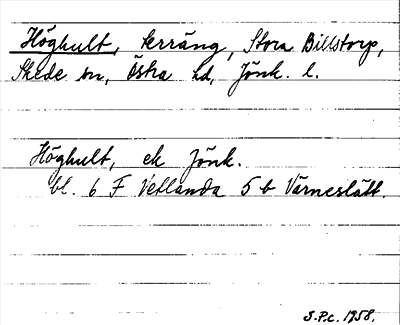 Höghult, terräng, Stora Billstorp,
Skede sn, Östra hd, Jönk. l.
Höghult, ek Jönk.
bl. 6 F Vetlanda 5 b Värneslätt.
S.P.c. 1958.